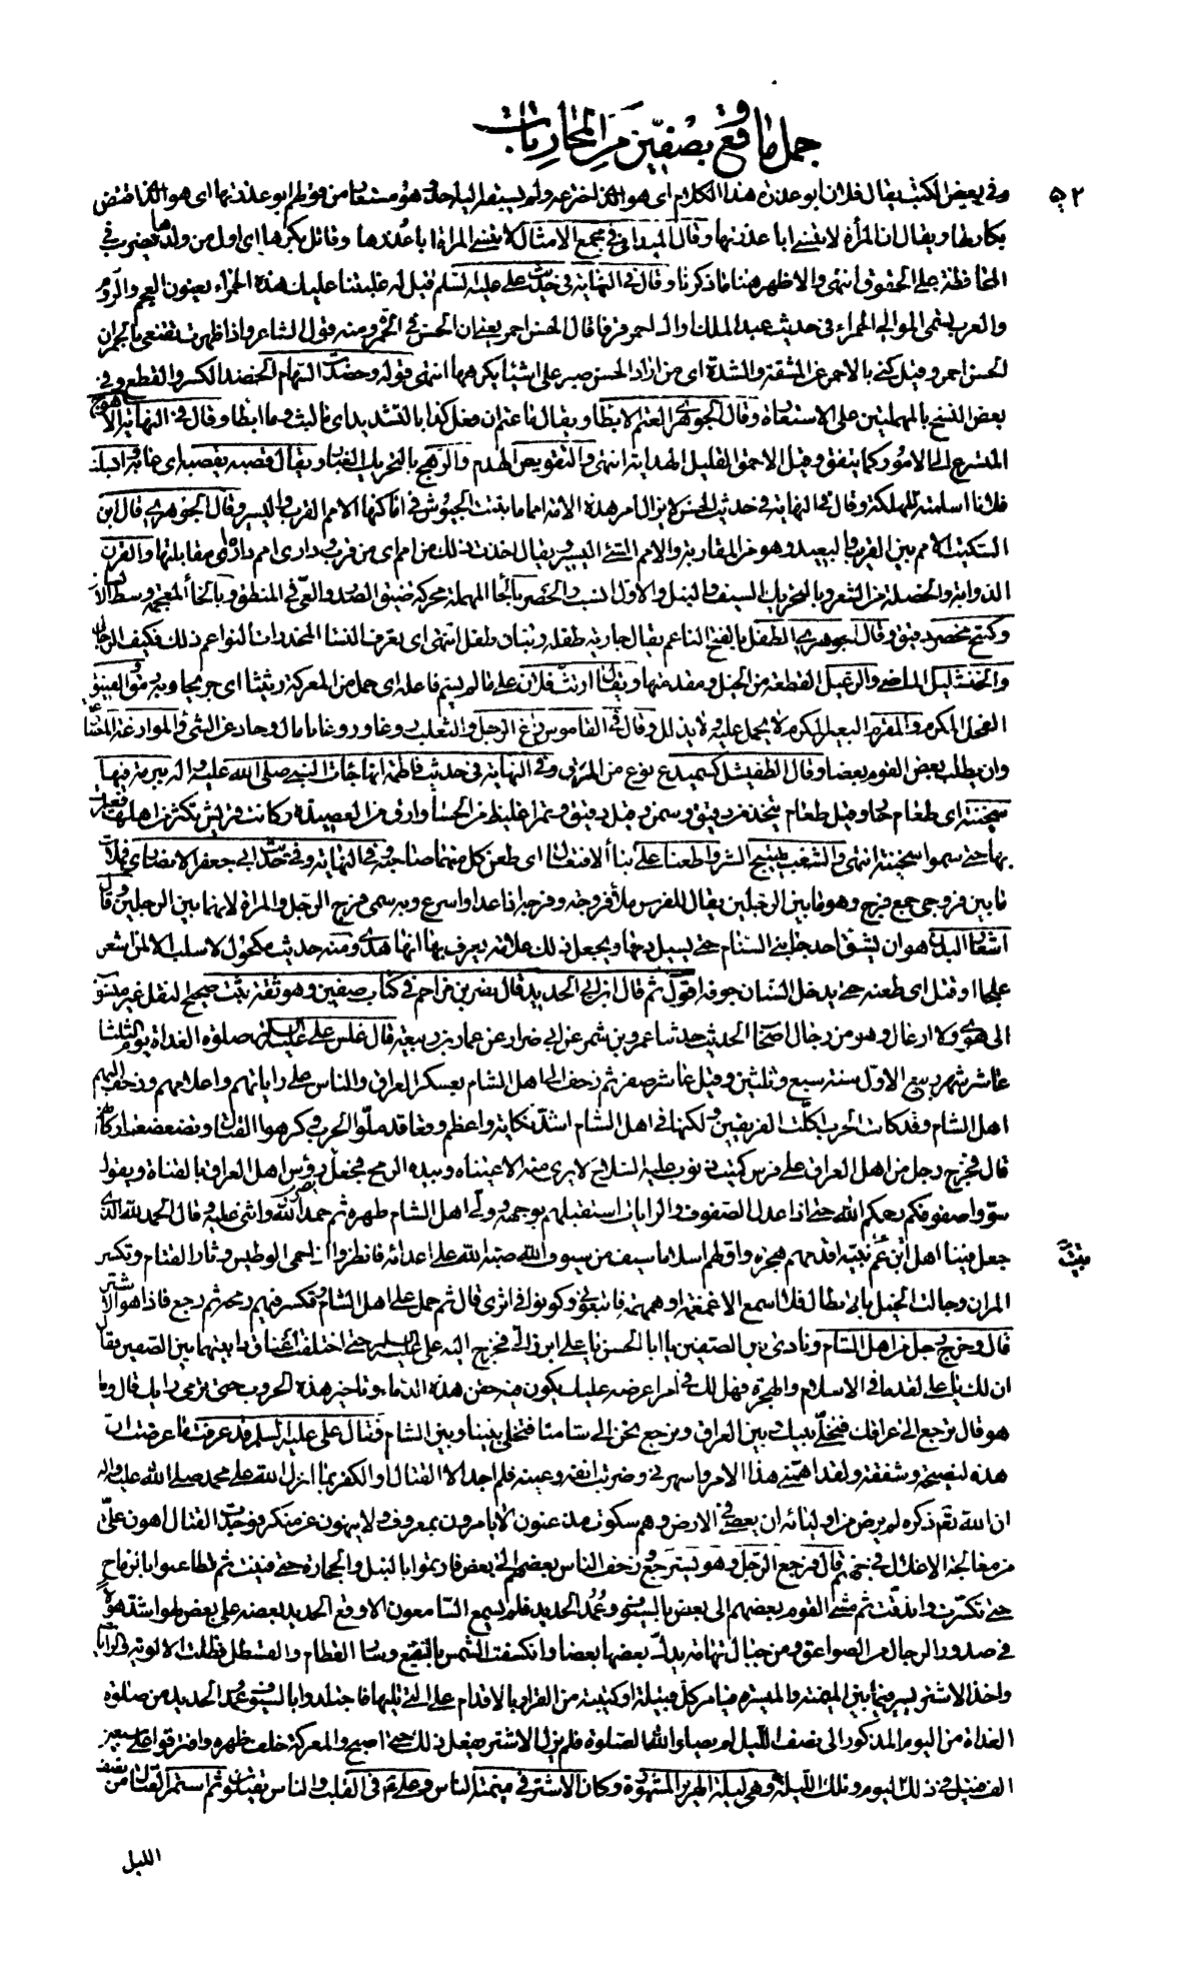 جمل ما وقع بصفين من المحاربات
٥٢
وفي بعض الكتب يقال فلان ابو عذرة هذا الكلام اي هو الذي اخترعه ولم يسبقه اليه احد وهو مستعار من قولهم ابو عذرتها اي هو الذي افتض
بكارتها ويقال ان المرأة لا تنسى ابا عذرتها وقال الميداني في مجمع الامثال لا تنسى المرأة ابا عذرها وقاتل بكرها اي اول من ولدها يضرب في
المحافظة على الحقوق انتهى والاظهر هنا ما ذكرنا وقال في النهاية في حديث علي عليه السلم قيل له غلبتنا عليك هذه الحمراء يعنون العجم والروم
والعرب تسمي الموالي الحمراء وفي حديث عبد الملك اراك احمر قرفا قال الحسن احمر يعني ان الحسن في الحمرة ومنه قول الشاعر واذا ظهرت تقنعي بالحمر ان
الحسن احمر وقيل كنى بالاحمر عن المشقة والشدة اي من اراد الحسن صبر على اشياء يكرهها انتهى قوله وخضد التهام الخضد الكسر والقطع وفي
بعض النسخ بالمهملتين على الاستعارة وقال الجوهري العتم الابطاء ويقال ما عتم ان فعل كذا بالتشديد اي ما لبث وما ابطأ وقال في النهاية الاهوج
المتسرع الى الامور كما يتفق وقيل الاحمق القليل الهداية انتهى والتقويض الهدم والرهج بالتحريك الغبار ويقال قصبه يقصبه اي عابه و
فلانا اسلمته للهلكة وقال في النهاية في حديث الحسن لا يزال امر هذه الامة امما ما بقيت الجيوش في اماكنها الامم القرب واليسير وقال الجوهري قال ابن
السكيت الامم بين القريب والبعيد وهو من المقاربة والامم الشئ اليسير يقال اخذت ذلك من امم اي من قرب وداري امم داره اي مقابلتها والقرن
الذؤابة والخصلة من الشعر وبالتحريك السيف والنبل والاول انسب والحصر بالحاء المهملة محركة ضيق الصدر والعي في المنطق وبالخاء المعجمة وسط الانسان
وكتف مخصر دقيق وقال الجوهري الطفل بالفتح الناعم يقال جارية طفلة وبنان طفل انتهى اي يعرف النساء المخدرات النواعم ذلك فكيف الرجال
والخنشليل الماضي والرعيل القطعة من الخيل ومقدمتها ويقال ارتث فلان على ما لم يسم فاعله اي حمل من المعركة رثيثا اي جريحا وبه رمق والفنيق
الفحل المكرم والمقرم البعير المكرم لا يحمل عليه ولا يذلل وقال في القاموس راغ الرجل والثعلب روغا وروغانا مال وحاد عن الشئ والمراوغة المصارعة
وان يطلب بعض القوم بعضا وقال الطفيشل كسميدع نوع من المرق وفي النهاية في حديث فاطمة انها جاءت النبي صلى الله عليه واله ببرمة فيها
سخينة اي طعام حار وقيل طعام يتخذ من دقيق وسمن وقيل دقيق وتمر اغلظ من الحساء وارق من العصيدة وكانت قريش تكثر من اكلها فعيرت
بها حتى سموا سخينة انتهى والشغب تهييج الشر واطعنا على بناء الافتعال اي طعن كل منهما صاحبه وفي النهاية وفي حديث ابي جعفر الانصاري فملأت
ما بين فروجي جمع فرج وهو ما بين الرجلين يقال للفرس ملأ فرجه وفروجه اذا عدا واسرع وبه سمي فرج الرجل والمرأة لانهما بين الرجلين وقال
اشعار البدن هو ان يشق احد جنبي السنام حتى يسيل دمها ويجعل ذلك علامة يعرف بها انها هدي ومنه حديث مكحول لا سلب الا لمن اشعر
علجا او قتل اي طعنه حتى يدخل السنان جوفه اقول ثم قال ابن ابي الحديد قال نصر بن مزاحم في كتاب صفين وهو ثقة ثبت صحيح النقل غير منسوب
الى هوى ولا ادغال وهو من رجال اصحاب الحديث حدثنا عمرو بن شمر عن ابي ضرار عن عمار بن ربيعة قال غلس علي عليه السلم بالناس صلوة الغداة يوم الثلثا
عاشر شهر ربيع الاول سنة سبع وثلثين وقيل عاشر صفر ثم زحف الى اهل الشام بعسكر العراق والناس على راياتهم واعلامهم وزحف اليهم
اهل الشام وقد كانت الحرب اكلت الفريقين ولكنها في اهل الشام اشد نكاية واعظم وقعا فقد ملوا الحرب وكرهوا القتال وتضعضعت اركانهم
قال فخرج رجل من اهل العراق على فرس كميت ذنوب عليه السلاح لا يرى منه الا عيناه وبيده الرمح فجعل يضرب رؤس اهل العراق بالقناة ويقول
سووا صفوفكم رحمكم الله حتى اذا عدل الصفوف والرايات استقبلهم بوجهه وولى اهل الشام ظهره ثم حمد الله واثنى عليه وقال الحمد لله الذي
جعل فينا ابن عم نبيه اقدمهم هجرة واولهم اسلاما سيف من سيوف الله صبه الله على اعدائه فانظروا اذا حمى الوطيس وثار القتام وتكسر
المران وجالت الخيل بالابطال فلا اسمع الا غمغمة او همهمة فاتبعوني وكونوا في اثري قال ثم حمل على اهل الشام وكسر فيهم رمحه ثم رجع فاذا هو الاشتر
قال وخرج رجل من اهل الشام ونادى بين الصفين يا ابا الحسن يا علي ابرز الي فخرج اليه علي عليه السلم حتى اختلفت اعناق دابتيهما بين الصفين فقال
ان لك يا علي لقدما في الاسلام والهجرة فهل لك في امر اعرضه عليك يكون فيه حقن هذه الدماء وتأخير هذه الحروب حتى ترى رأيك قال وما
هو قال ترجع الى عراقك فنخلي بينك وبين العراق ونرجع نحن الى شامنا فتخلي بيننا وبين الشام فقال علي عليه السلم قد عرفت ما عرضت ان
هذه لنصيحة وشفقة ولقد اهمني هذا الامر واسهرني وضربت انفه وعينه فلم اجد الا القتال او الكفر بما انزل الله على محمد صلى الله عليه واله
ان الله تعالى ذكره لم يرض من اوليائه ان يعصى في الارض وهم سكوت مذعنون لا يأمرون بمعروف ولا ينهون عن منكر فوجدت القتال اهون علي
من معالجة الاغلال في جهنم قال فرجع الرجل وهو يسترجع وزحف الناس بعضهم الى بعض فارتموا بالنبل والحجارة حتى فنيت ثم تطاعنوا بالرماح
حتى تكسرت واندقت ثم مشى القوم بعضهم الى بعض بالسيوف وعمد الحديد فلم يسمع السامعون الا وقع الحديد بعضه على بعض لهو اشد هولا
في صدور الرجال من الصواعق ومن جبال تهامة يدك بعضها بعضا وانكسفت الشمس بالنقع وثار القتام والقسطل وضلت الالوية والرايات
واخذ الاشتر يسير فيما بين الميمنة والميسرة فيأمر كل قبيلة او كتيبة من القراء بالاقدام على التي تليها فاجتلدوا بالسيوف وعمد الحديد من صلوة
الغداة من اليوم المذكور الى نصف الليل لم يصلوا لله صلوة فلم يزل الاشتر يفعل ذلك حتى اصبح والمعركة خلف ظهره وافترقوا على سبعين
الف قتيل في ذلك اليوم وتلك الليلة وهي ليلة الهرير المشهورة وكان الاشتر في ميمنة الناس و في القلب والناس يقتتلون ثم استمر القتال من نصف
الليل